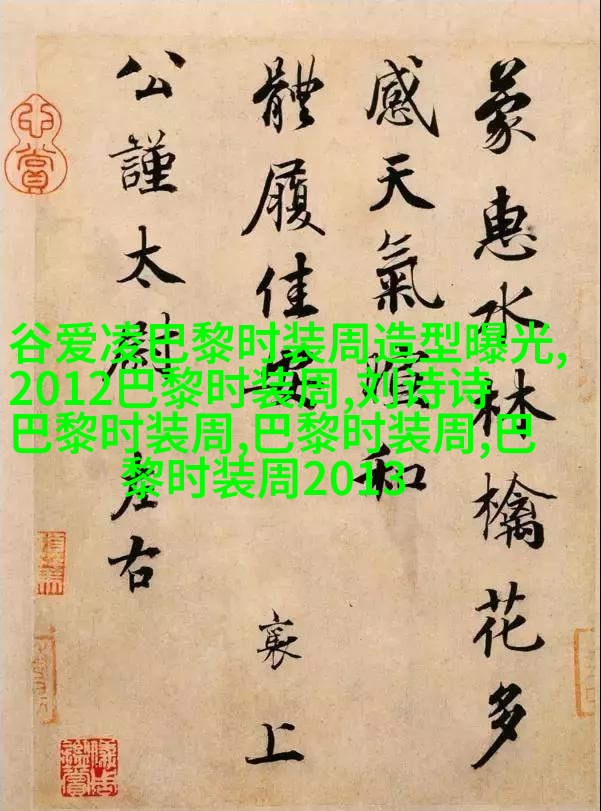 谷爱凌巴黎时装周造型曝光,
2012巴黎时装周,刘诗诗
巴黎时装周,巴黎时装周,巴
黎时装周2013
蒙惠水林檎花多
感天氣暄和
體履佳安
襄上
公謹太尉左右